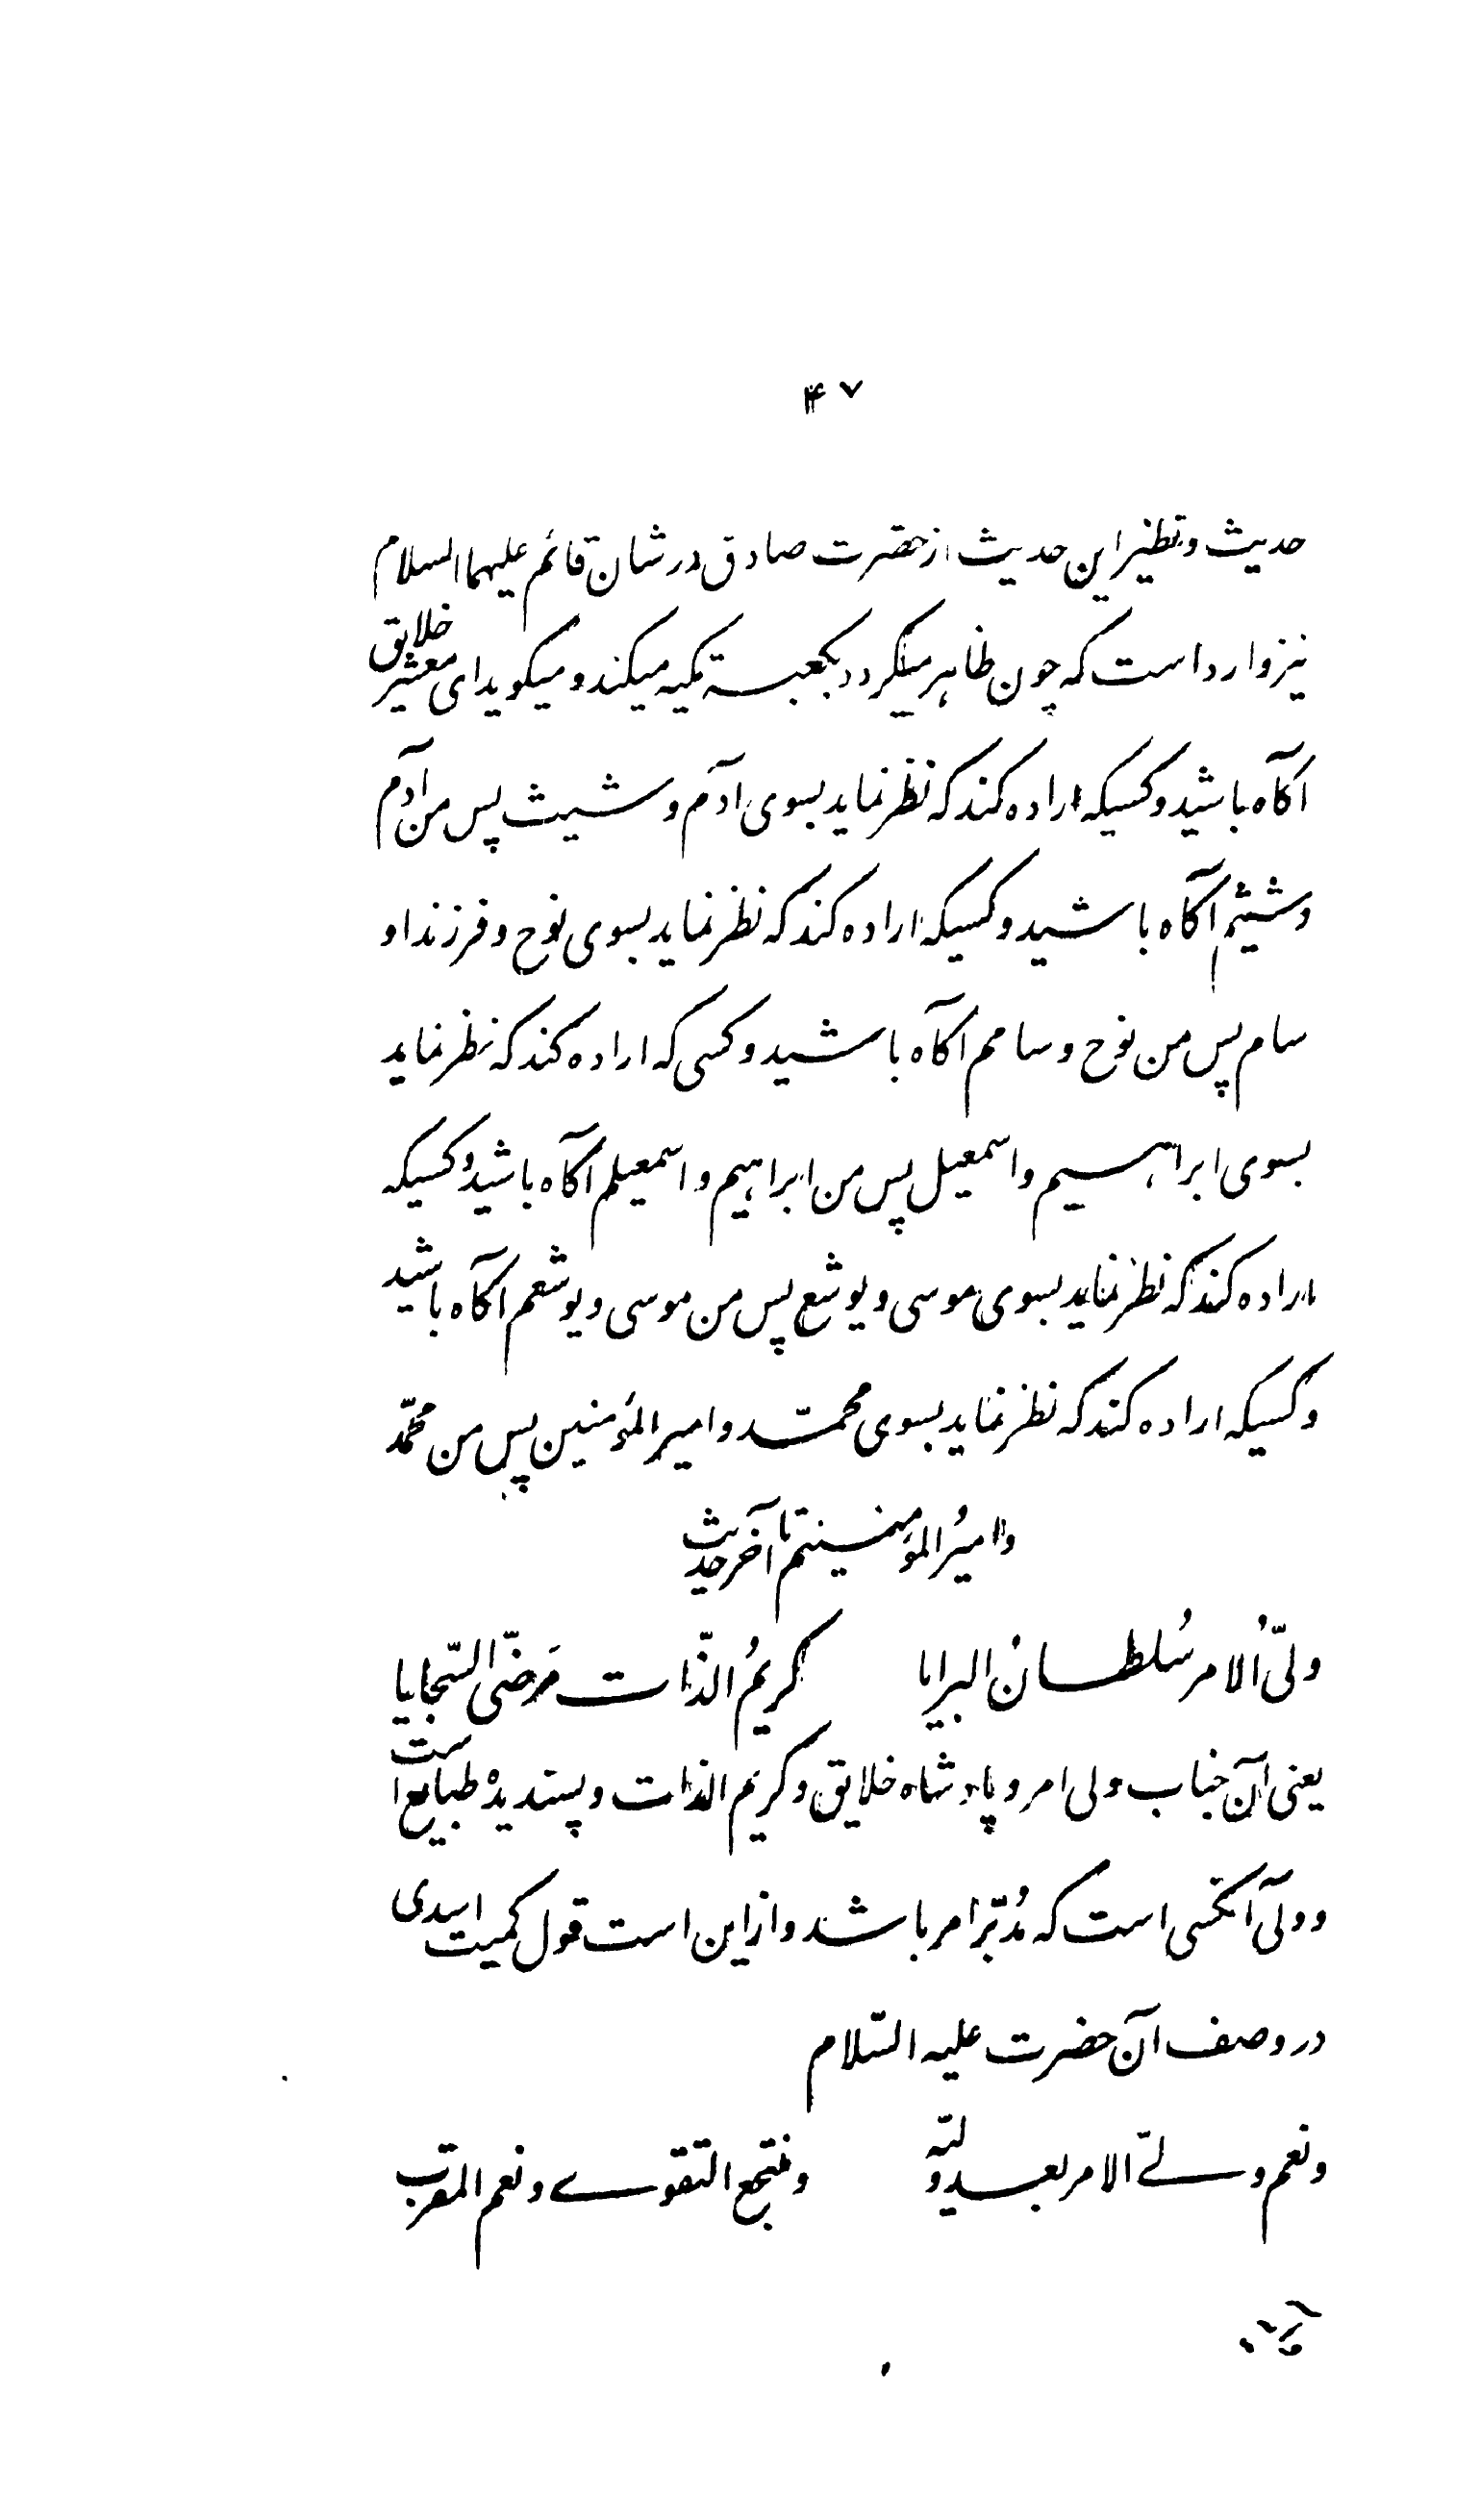 ۴۷
حدیث و نظیر این حدیث از حضرت صادق در شان قائم علیهما السلام
نیز وارد است که چون ظاهر میگردد بکعبه تکیه میکند و میگوید ای معشر خلایق
آگاه باشید و کسیکه اراده کند که نظر نماید بسوی آدم و شیث پس من آدم
و شیثم آگاه باشید و کسیکه اراده کند که نظر نماید بسوی نوح و فرزند او
سام پس من نوح و سامم آگاه باشید و کسی که اراده کند که نظر نماید
بسوی ابراهیم و اسمعیل پس من ابراهیم و اسمعیلم آگاه باشید و کسیکه
اراده کند که نظر نماید بسوی موسی و یوشع پس من موسی و یوشعم آگاه باشید
و کسیکه اراده کند که نظر نماید بسوی محمّد و امیر المؤمنین پس من محمّد
و امیرُ المؤمنینم تا آخر حدیث
ولیّ الامر سُلطان البرایا کریمُ الذّات مَرضیّ السّجایا
یعنی آن جناب ولی امر و پادشاه خلایق و کریم الذات و پسندیده طبایع است
و ولی آنکسی است که مُدبّر امر باشد و از این است قول کمیت اسدی
در وصف آن حضرت علیه السّلام
و نعم ولیّ الامر بعد ولیّه و منتجع التقوی و نعم المقرب